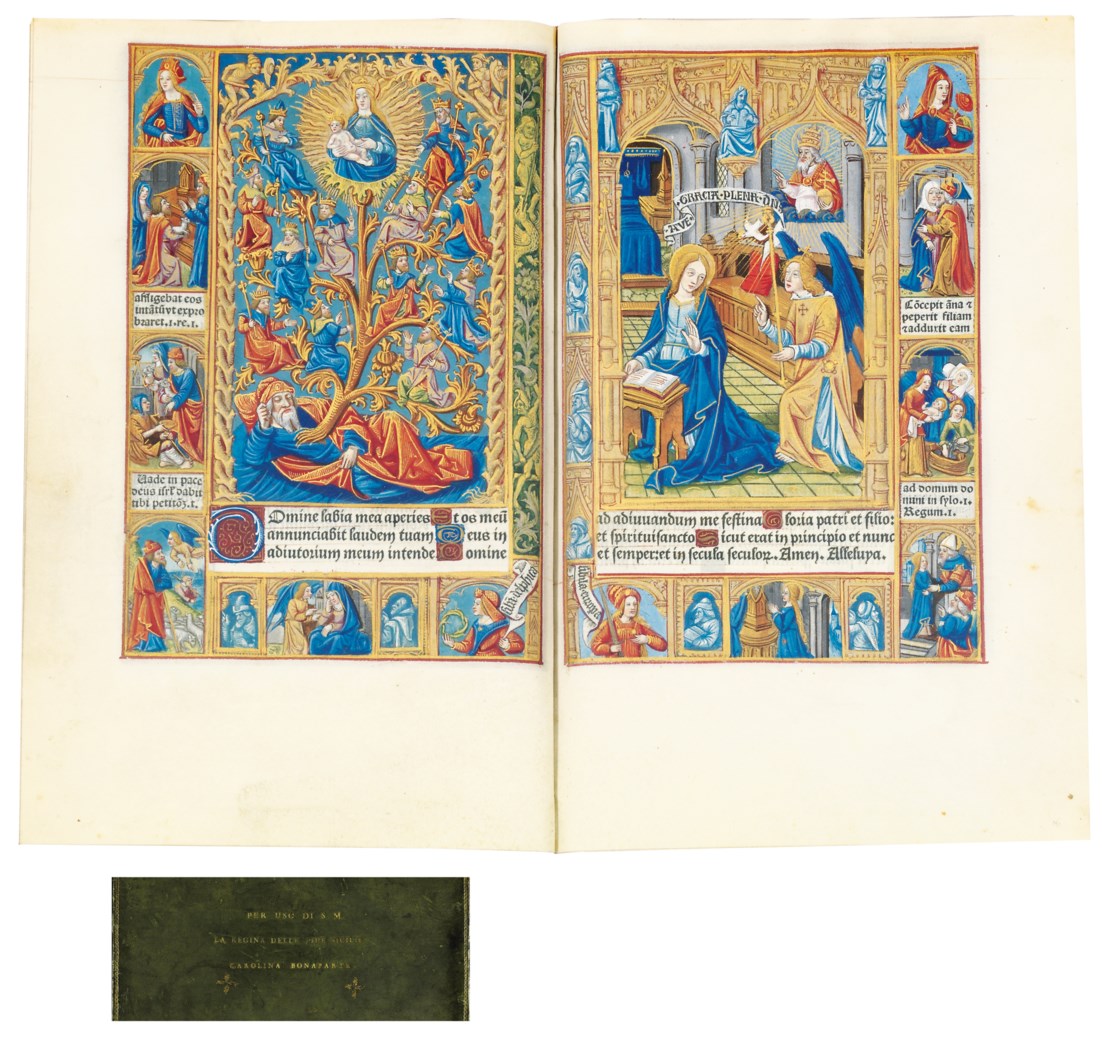 affligebat eos
intātūvt expro
braret.1.re.1.
Uade in pace
deus isrl' dabit
tibi petitōz.1.
Domine labia mea aperies Et os meū
annunciabit laudem tuam Deus in
adiutorium meum intende Domine
sibila delphica
AVE · GRACIA · PLENA · DN̄S
Cōcepit āna ⁊
peperit filiam
⁊ adduxit eam
ad domum do
mini in sylo.1.
Regum.1.
ad adiuuandum me festina Gloria patri et filio:
et spirituisancto Sicut erat in principio et nunc
et semper: et in secula seculoꝝ. Amen. Alleluya.
sibila europa
PER USO DI S. M.
LA REGINA DELLE DUE SICILIE
CAROLINA BONAPARTE